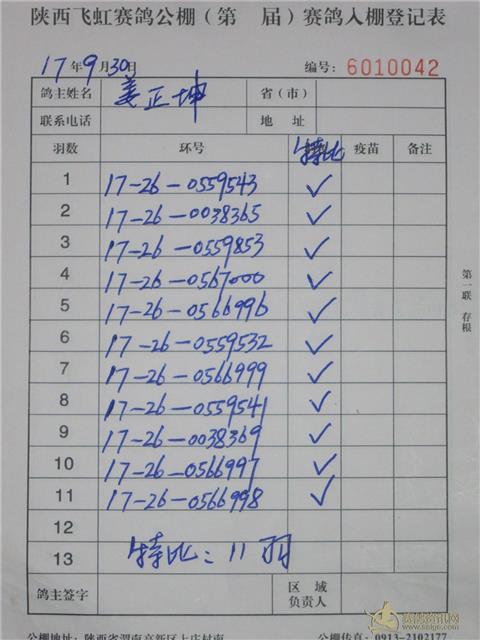 陕西飞虹赛鸽公棚（第　届）赛鸽入棚登记表
17年9月30日 编号：6010042
鸽主姓名 姜正坤 省（市）
联系电话 地址
羽数 环号 特比 疫苗 备注
1 17-26-0559543 ✓
2 17-26-0038365 ✓
3 17-26-0559853 ✓
4 17-26-0567000 ✓
5 17-26-0566996 ✓
6 17-26-0559532 ✓
7 17-26-0566999 ✓
8 17-26-0559541 ✓
9 17-26-0038369 ✓
10 17-26-0566997 ✓
11 17-26-0566998 ✓
12
13 特比：11羽
鸽主签字 区域负责人
公棚地址：陕西省渭南高新区上庄村南 公棚传真：0913-2102177
第一联 存根